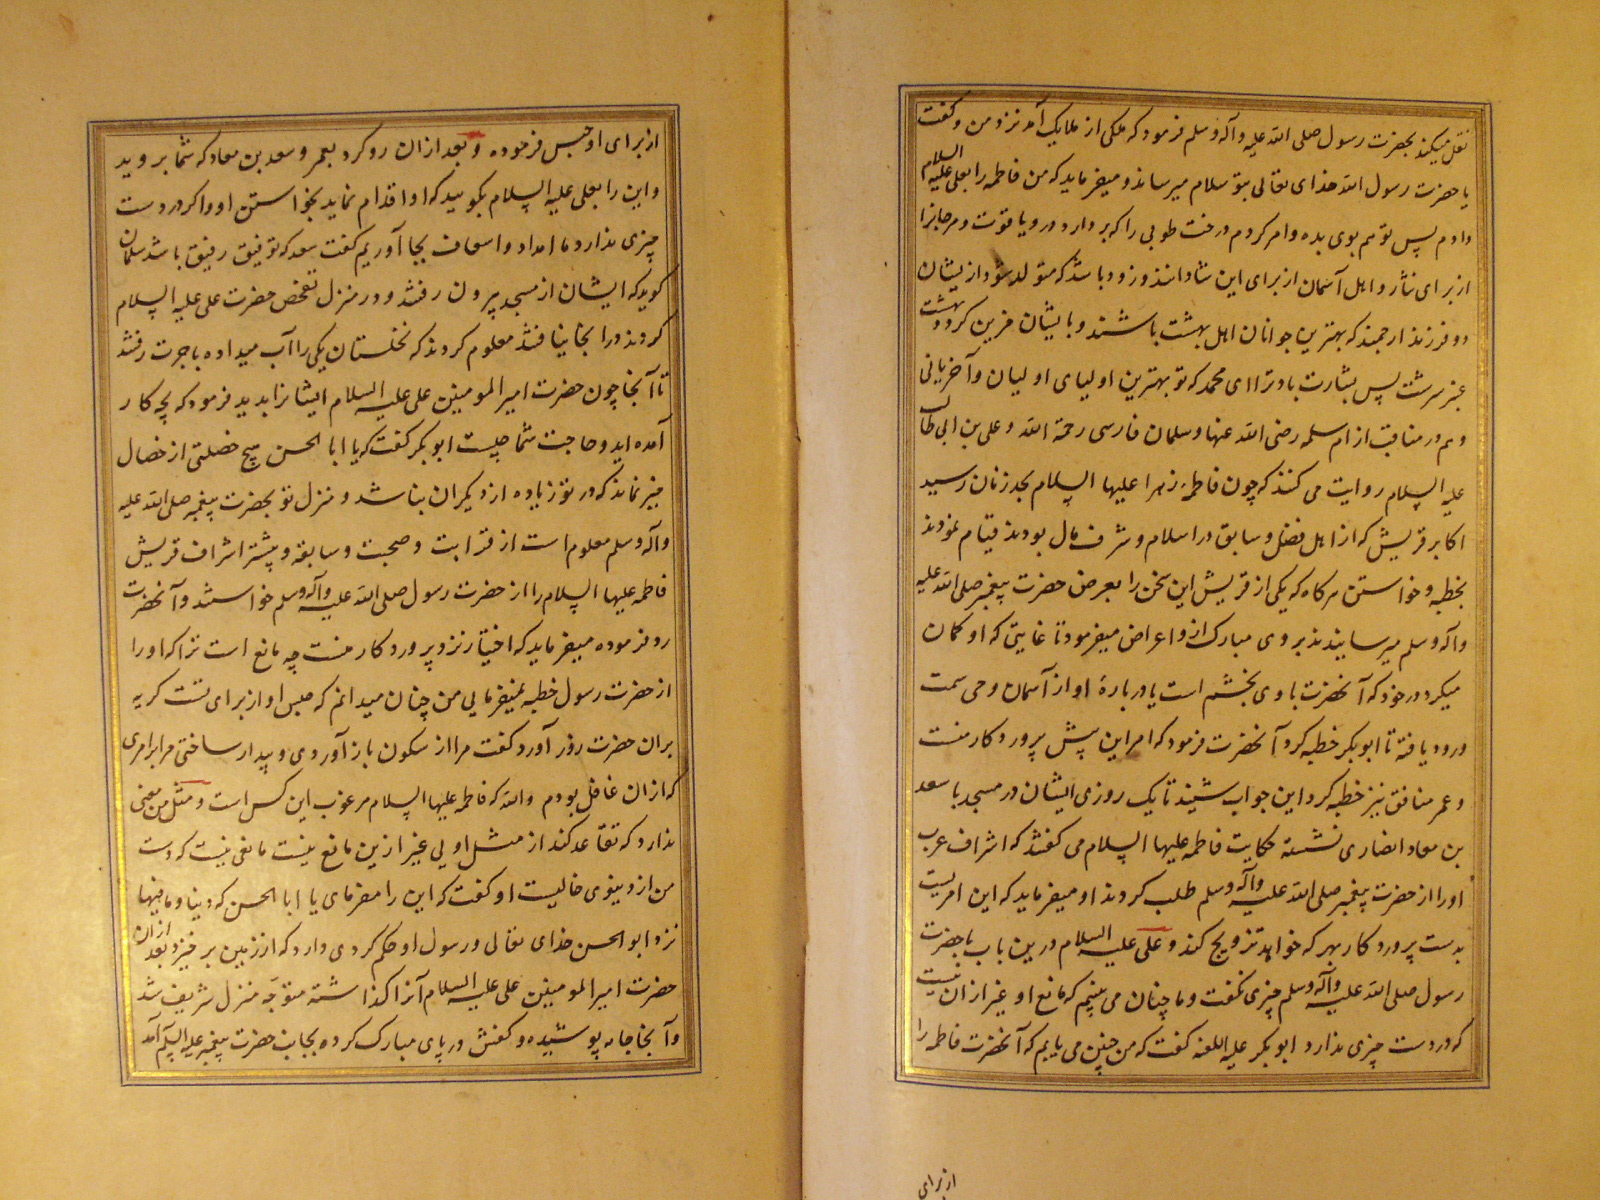 نقل میکند بحضرت رسول صلی الله علیه وآله وسلم فرمود که ملکی از ملایک آمد نزد من و گفت
یا حضرت رسول الله خدای تعالی بتو سلام میرساند و میفرماید که من فاطمه را بعلی علیه السلام
دادم پس تو هم بوی بده وامر کردم درخت طوبی را که بردارد در و یاقوت و مرجانرا
از برای نثار و اهل آسمان از برای این شادانند و زود باشد که متولد شود از یشان
دو فرزند ارجمند که بهترین جوانان اهل بهشت باشند و بایشان مزین کردد بهشت
عنبر سرشت پس بشارت باد ترا ای محمد که تو بهترین اولیای اولیان و آخریانی
و هم در مناقب از ام سلمه رضی الله عنها وسلمان فارسی رحمة الله وعلی بن ابی طالب
علیه السلام روایت می کنند که چون فاطمهٔ زهرا علیها السلام بحد زنان رسید
اکابر قریش که از اهل فضل و سابق در اسلام و شرف مال بودند قیام نمودند
بخطبه و خواستن هرکاه که یکی از قریش این سخن را بعرض حضرت پیغمبر صلی الله علیه
وآله وسلم میرسانیدند بروی مبارک ازو اعراض میفرمود تا غایتی که او کمان
میکرد در خود که آنحضرت باوی بخشم است یا دربارهٔ او از آسمان وحی سمت
ورود یافته تا ابوبکر خطبه کرد آنحضرت فرمود که امر این پیش پروردکار منست
و عمر منافق نیز خطبه کرد این جواب شنید تا یک روزی ایشان در مسجد با سعد
بن معاد انصاری نشسته حکایت فاطمه علیها السلام می کفتند که اشراف عرب
اورا از حضرت پیغمبر صلی الله علیه وآله وسلم طلب کردند او میفرماید که این امریست
بدست پروردکار بهر که خواهد تزویج کند و علی علیه السلام درین باب با حضرت
رسول صلی الله علیه وآله وسلم چیزی نکفت و ما چنان می بینیم که مانع او غیر از ان نیست
که در دست چیزی ندارد ابوبکر علیه اللعنه کفت که من چنین می یابم که آنحضرت فاطمه را
از برای
از برای او حبس فرموده و بعد ازان رو کرد بعمر و سعد بن معاد که شما بروید
واین را بعلی علیه السلام بکویید که او اقدام نماید بخواستن او و اکر در دست
چیزی ندارد ما امداد و اسعاف بجا آوریم کفت سعد که توفیق رفیق باشد سلمان
کوید که ایشان از مسجد بیرون رفتند و در منزل تفحص حضرت علی علیه السلام
کردند و را بجا نیافتند معلوم کردند که نخلستان یکی را آب میداده باجرت رفتند
تا آنجا چون حضرت امیر المومنین علی علیه السلام ایشانرا بدید فرمود که بچه کار
آمده اید و حاجت شما چیست ابوبکر کفت که یا ابا الحسن هیچ خصلتی از خصال
خیر نماند که در تو زیاده از دیکران نباشد و منزل تو بحضرت پیغمبر صلی الله علیه
وآله وسلم معلوم است از قرابت و صحبت و سابقه و پیشتر اشراف قریش
فاطمه علیها السلام را از حضرت رسول صلی الله علیه وآله وسلم خواستند و آنحضرت
رد فرموده میفرماید که اختیار نزد پروردکار منست چه مانع است ترا که اورا
از حضرت رسول خطبه نمیفرمایی من چنان میدانم که حبس او از برای تست کریه
بران حضرت زور آورد کفت مرا از سکون باز آوردی و بیدار ساختی مرا بر امری
که ازان غافل بودم والله که فاطمه علیها السلام مرغوب این کس است و مثل من معنی
ندارد که تقاعد کند از مثل اویی غیر ازین مانع نیست مانعی نیست که دست
من از دنیوی خالیست او کفت که این را مفرمای یا ابا الحسن که دنیا و مافیها
نزد ابو الحسن خدای تعالی و رسول او حکم کردی دارد که از زمین برخیزد بعد ازان
حضرت امیر المومنین علی علیه السلام آنرا کذاشته متوجه منزل شریف شد
و آنجا جامه پوشیده و کفش در پای مبارک کرده بجانب حضرت پیغمبر علیه السلم آمد